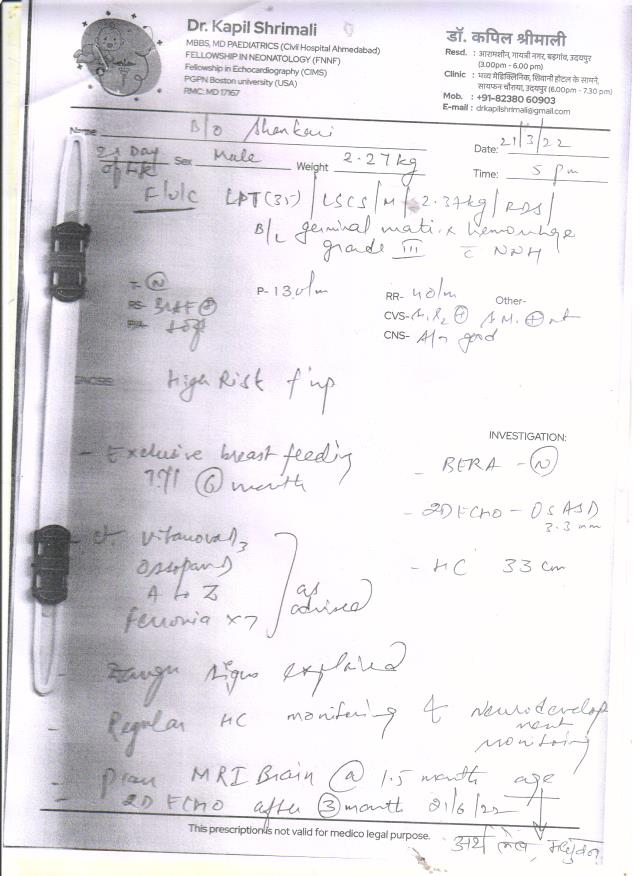 Dr. Kapil Shrimali
MBBS, MD PAEDIATRICS (Civil Hospital Ahmedabad)
FELLOWSHIP IN NEONATOLOGY (FNNF)
Fellowship in Echocardiography (CIMS)
PGPN Boston university (USA)
RMC: MD 17167
डॉ. कपिल श्रीमाली
Resd. : आरामशीन, गायत्री नगर, बड़गांव, उदयपुर
(3.00pm - 6.00 pm)
Clinic : भव्य मेडिक्लिनिक, शिवानी होटल के सामने,
सायफन चौराया, उदयपुर (6.00pm - 7.30 pm)
Mob. : +91-82380 60903
E-mail : drkapilshrimali@gmail.com
Name B/O Shankari
Date: 21/3/22
21 Day of life Sex Male Weight 2.27 kg
Time: 5 pm
F/U/C LPT (35) / LSCS / M / 2.37 kg / RDS /
B/L germinal matrix hemorrhage
grade III c NNH
T- N P- 130/m RR- 40/m Other-
RS- BLAE + CVS- S1S2 + SM +nt
P/A- soft CNS- A/T good
GNOSIS High Risk f/up
INVESTIGATION:
- Exclusive breast feeding
till 6 month
- BERA - N
- 2D ECHO - OS ASD
3.3 mm
- HC 33 cm
- ct. Vitanova D3
Ossopan D
A to Z
Ferronia x 7
as advised
- Danger signs explained
- Regular HC monitoring & Neurodevelop
ment
monitoring
- Plan MRI Brain @ 1.5 month age
- 2D ECHO after 3 month 21/6/22
This prescription is not valid for medico legal purpose.